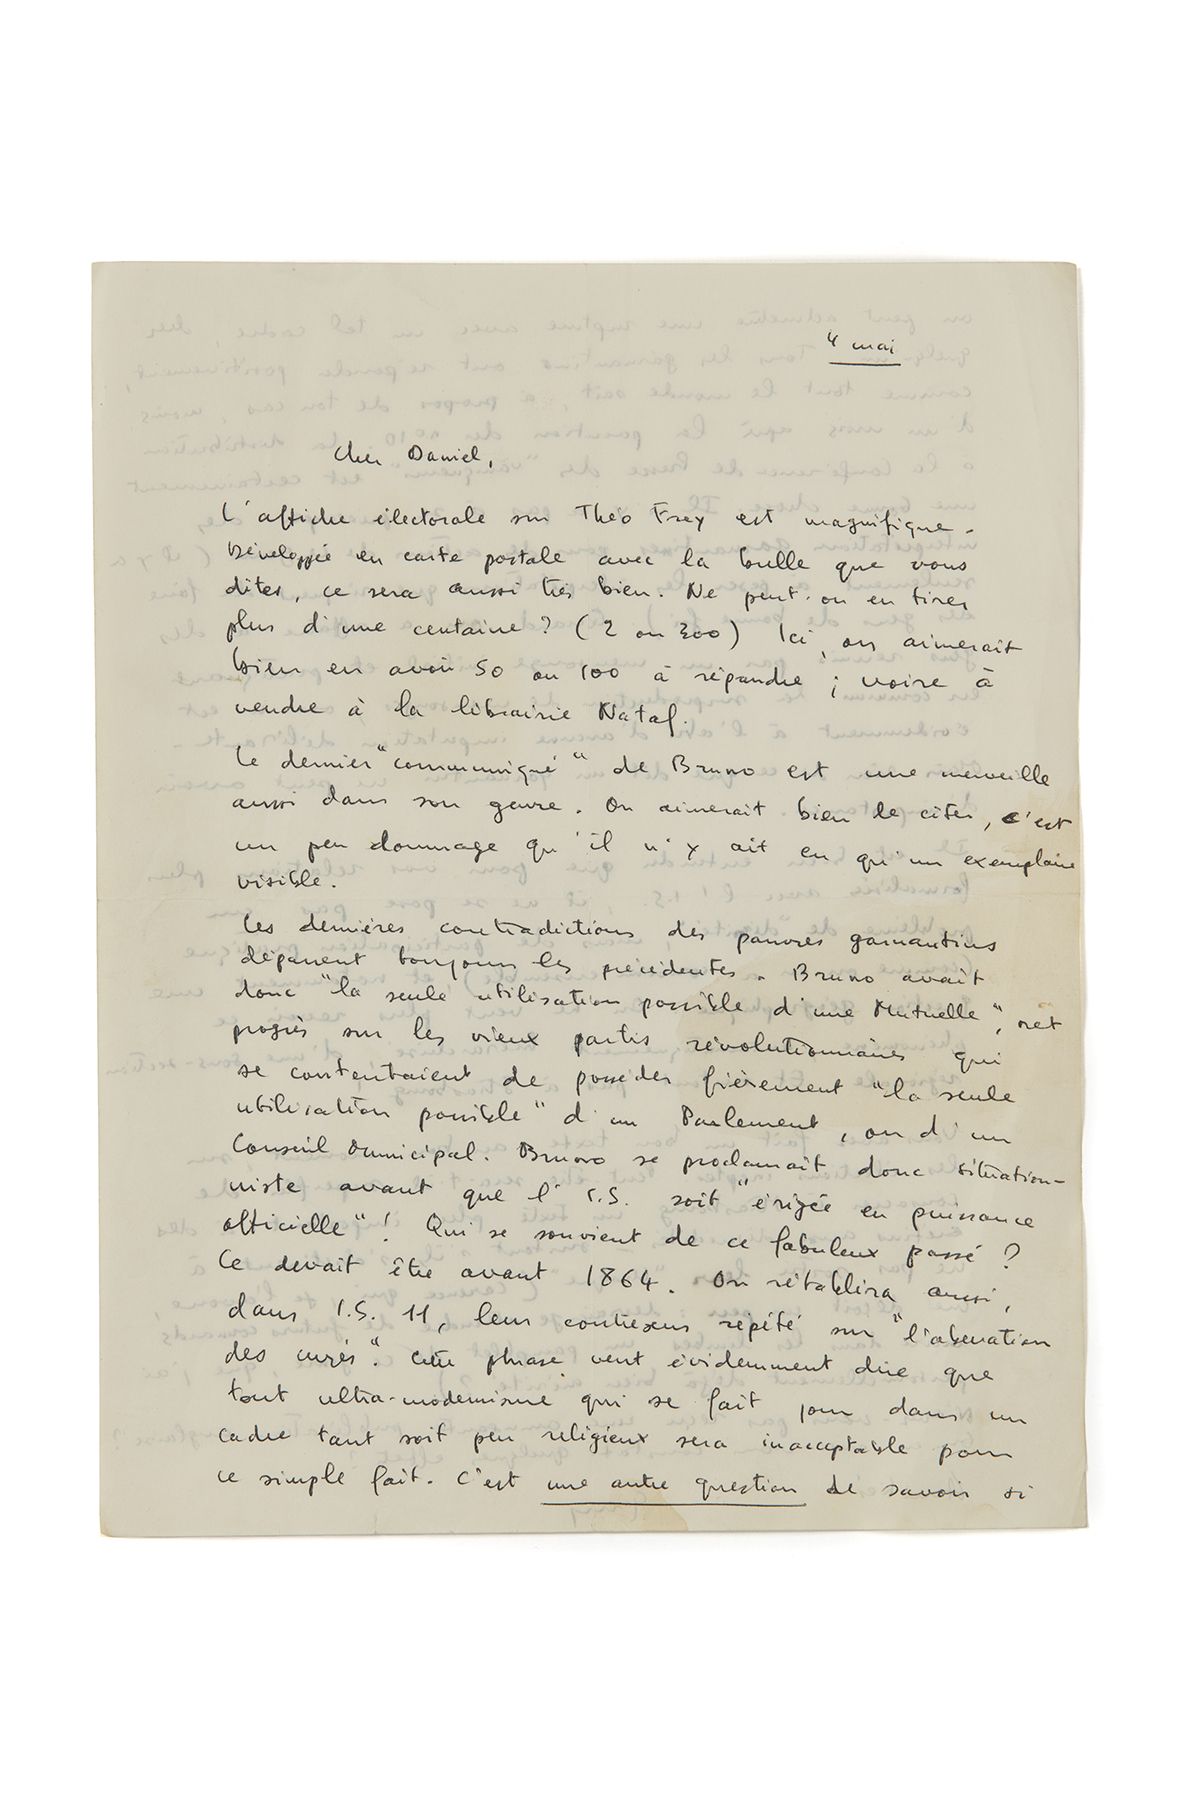 4 mai
Cher Daniel,
L'affiche électorale sur Théo Frey est magnifique.
Développée en carte postale avec la bulle que vous
dites, ce sera aussi très bien. Ne peut-on en tirer
plus d'une centaine ? (2 ou 300) Ici, on aimerait
bien en avoir 50 ou 100 à répandre ; voire à
vendre à la librairie Nataf.
Le dernier "communiqué" de Bruno est une merveille
aussi dans son genre. On aimerait bien le citer, c'est
un peu dommage qu'il n'y ait eu qu'un exemplaire
visible.
Les dernières contradictions des pauvres garnautins
dépassent toujours les précédentes. Bruno avait
donc "la seule utilisation possible d'une Mutuelle", net
progrès sur les vieux partis révolutionnaires qui
se contentaient de posséder fièrement "la seule
utilisation possible" d'un Parlement, ou d'un
Conseil Municipal. Bruno se proclamait donc situation-
niste avant que l'I.S. soit "érigée en puissance
officielle" ! Qui se souvient de ce fabuleux passé ?
Ce devait être avant 1864. On rétablira aussi,
dans I.S. 11, leur contresens répété sur "l'abenation
des curés". Cette phrase veut évidemment dire que
tout ultra-modernisme qui se fait jour dans un
cadre tant soit peu religieux sera inacceptable pour
ce simple fait. C'est une autre question de savoir si